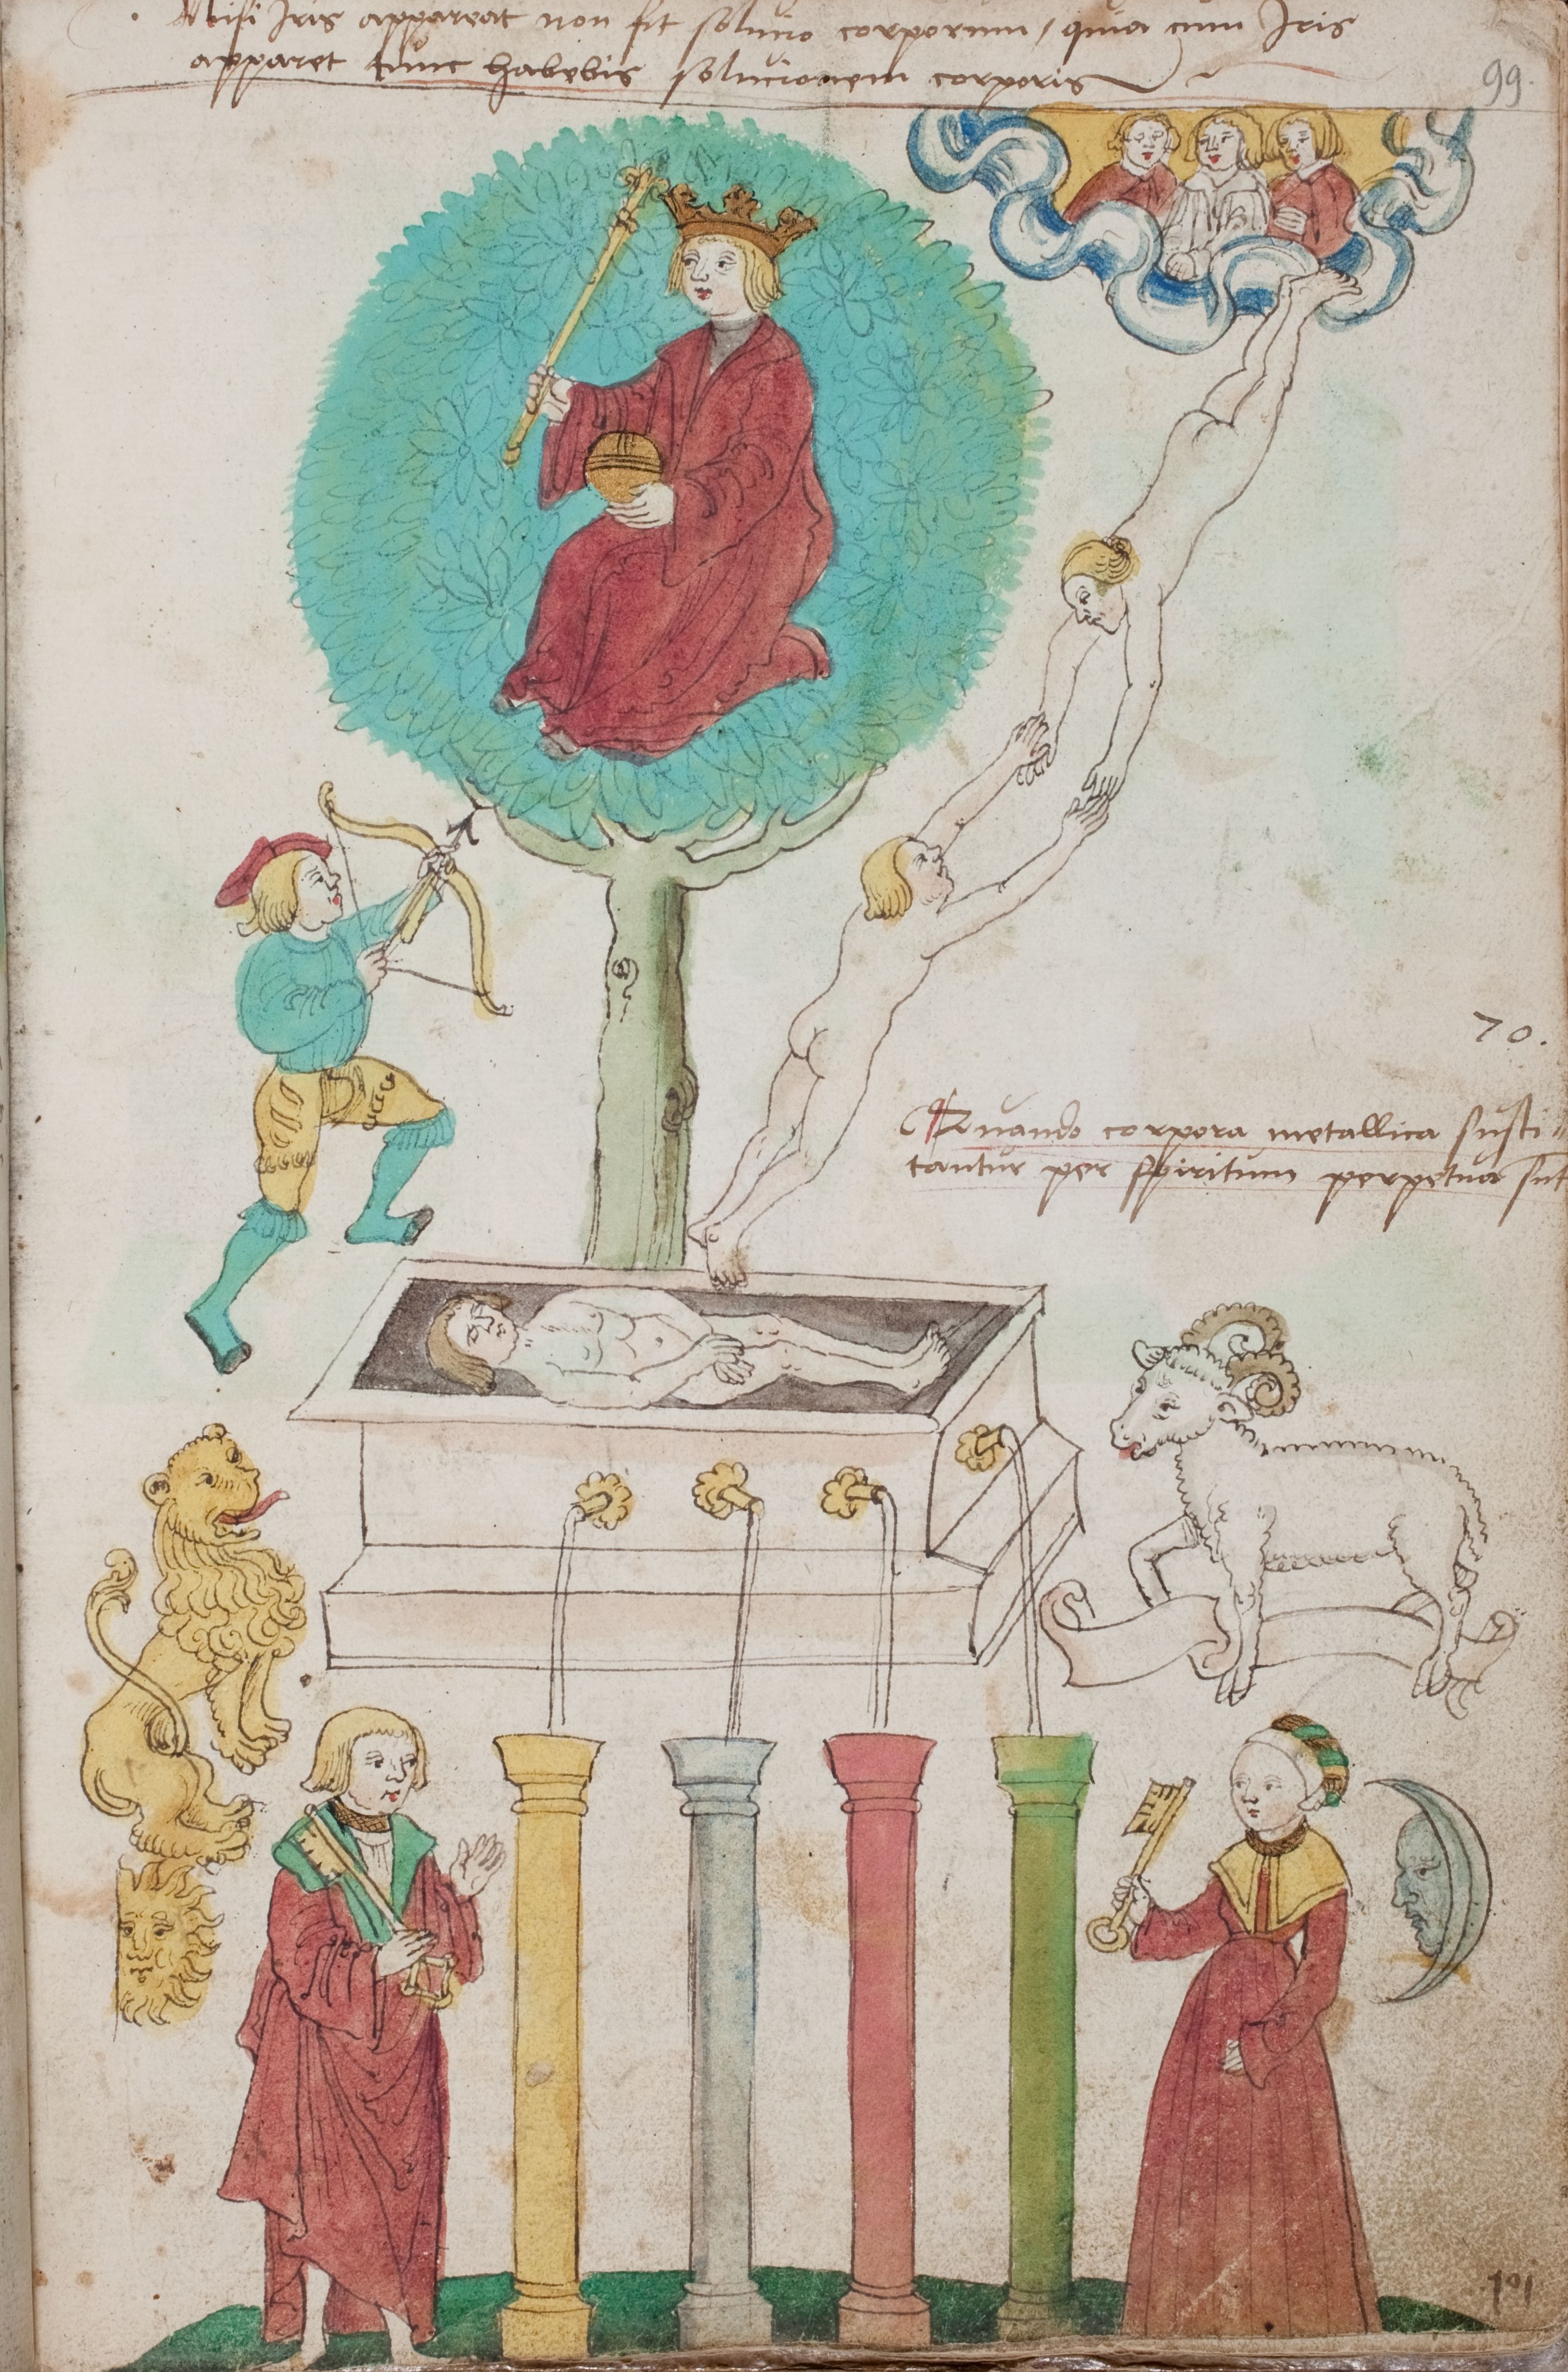 Nisi Iris appareat non fit solucio corporum / quia cum Iris
apparet tunc habebis solucionem corporis
99.
70.
Quando corpora metallica susci⸗
tantur per spiritum perpetua
101